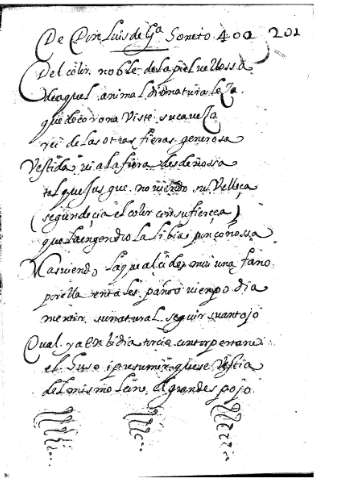 De Don Luis de Gª Soneto 402 201
Del color noble de la piel vellossa
de aquel animal dio naturaleza
que de corona viste su caveza
rei de las otras fieras generosa
Vestida vi a la fiera desdeñosa
tal que jusgue no viendo su velleça
(segun decia el color con su fiereça)
que la engendro la libia ponçoñossa
Mas viendo la que alcides mui ufano
por ella en tales paños vien podia
mentir su natural seguir su antojo
Qual ya en lidia torcio
el huso i presumir que se vestia
del mismo leon el gran despojo